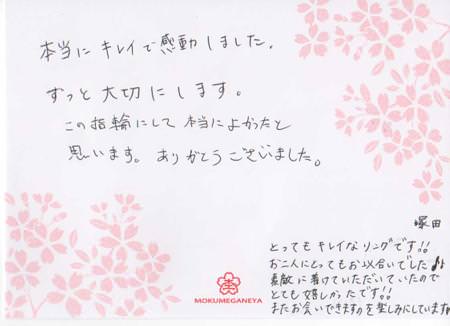 本当に キレイで感動しました。
ずっと 大切に します。
この指輪にして 本当に よかったと
思います。ありがとう ございました。
塚田
とっても キレイな リングです!!
お二人にとっても お似合いでした♪♪
素敵に 着けていただいていたので
とても 嬉しかったです!!
またお会いできますのを 楽しみにしています
MOKUMEGANEYA